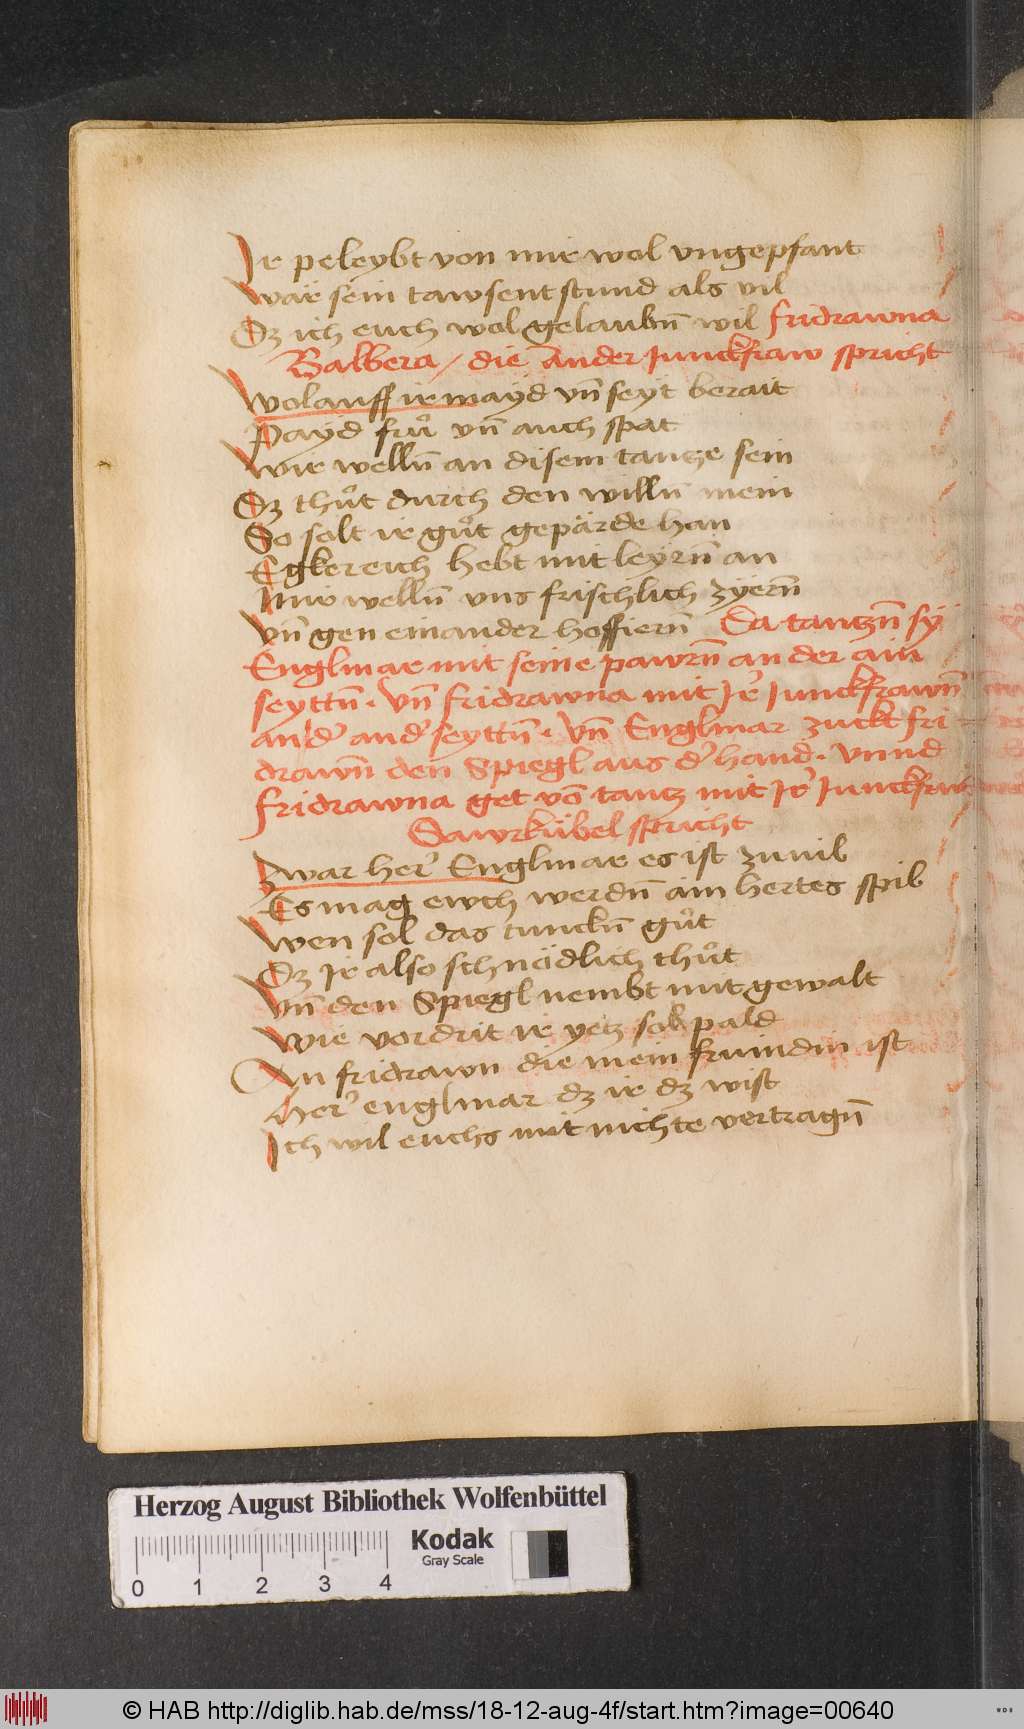 Ir peleybt von mir wol vngepfant
wär sein tawsent stund als vil
Dz ich euch wol gelaubñ wil fridrawna
Balbera / die ander Junckfraw spricht
Wolauff ir mayd vñ seyt berait
Payd frů vñ auch spat
wir wellñ an disem tantze sein
Dz thůt durch den willñ mein
So solt ir gůt gepärde han
Egkereich hebt mit leyrñ an
Nw wellñ vns frischlich zyerñ
vñ gen einander hoffierñ Da tantzñ sy
Englmar mit seine pawrñ an der ain
seyttñ. vñ fridrawna mit Jr̓ Junckfrawñ
an d̓ and̓ seyttñ. vñ Englmar zuckt fri-
drawñ den Spiegl aus d̓ hand. vnnd
fridrawna get võ tantz mit Jr̓ Junckfraw
Sawrkübel spricht
Zwar her̓ Englmar es ist zuuil
Es mag ewch werdñ ain hertes spil
wen sol das tunckñ gůt
Dz Ir also schnödlich thůt
vñ den Spiegl nembt mit gewalt
wie vordrit ir yetz so pald
An fridrawn die mein fruindin ist
her̓ englmar dz ir dz wist
Ich wil euchs mit nichte vertragñ
Herzog August Bibliothek Wolfenbüttel
Kodak
Gray Scale
0 1 2 3 4
© HAB http://diglib.hab.de/mss/18-12-aug-4f/start.htm?image=00640